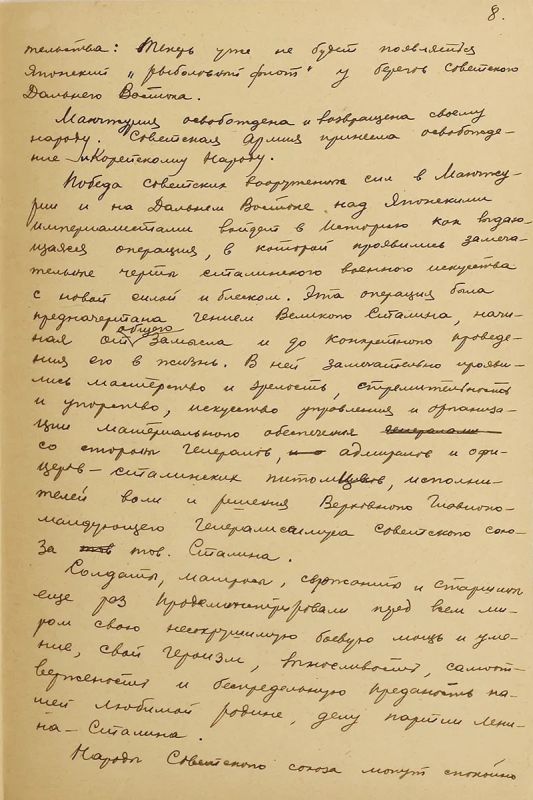 8.
тельства: Теперь уже не будет появляться
Японский „рыболовный флот" у берегов Советского
Дальнего Востока.
Манчжурия освобождена и возвращена своему
народу. Советская Армия принесла освобожде-
ние Корейскому Народу.
Победа советских вооруженных сил в Манчжу-
рии и на Дальнем Востоке над Японскими
империалистами войдет в историю как выдаю-
щаяся операция, в которой проявились замеча-
тельные черты сталинского военного искусства
с новой силой и блеском. Эта операция была
предначертана гением Великого Сталина, начи-
ная от общего Замысла и до конкретного проведе-
ния его в жизнь. В ней замечательно прояви-
лись мастерство и зрелость, стремительность
и упорство, искусство управления и организа-
ции материального обеспечения генералами
со стороны генералов, адмиралов и офи-
церов – сталинских питомцев, исполни-
телей воли и решения Верховного Главноко-
мандующего Генералиссимуса Советского сою-
за тов. Сталина.
Солдаты, матросы, сержанты и старшины
еще раз продемонстрировали перед всем ми-
ром свою несокрушимую боевую мощь и уме-
ние, свой героизм, выносливость, самоот-
верженость и беспредельную преданость на-
шей любимой родине, делу партии Лени-
на – Сталина.
Народы Советского союза могут спокойно